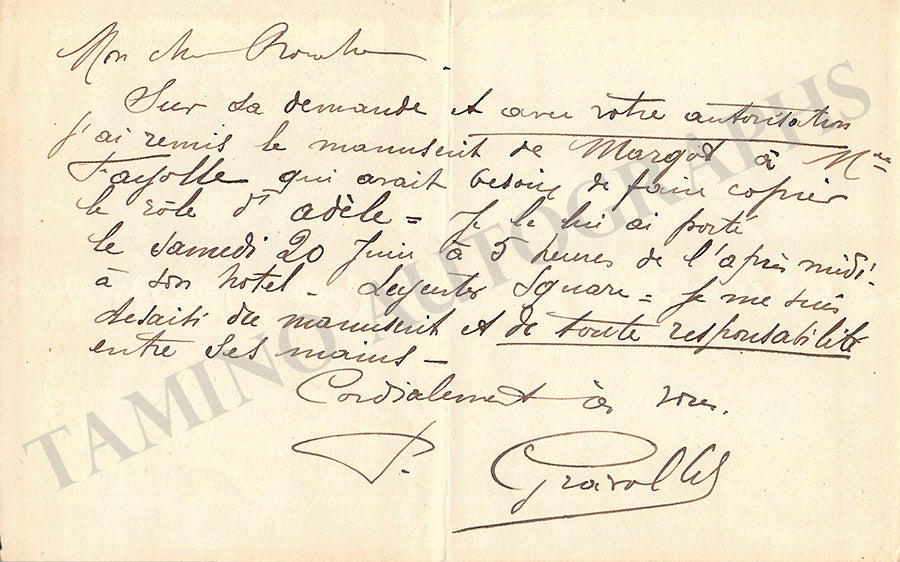 Mon cher
Sur sa demande et avec votre autorisation
j'ai remis le manuscrit de Margot à Mme
Fayolle qui avait besoin de faire copier
le rôle d'adèle = Je le lui ai porté
le samedi 20 Juin à 5 heures de l'après midi
à son hotel - Square = Je me suis
désaisi du manuscrit et de toute responsabilité
entre ses mains -
Cordialement à vous.
P.
TAMINO AUTOGRAPHS